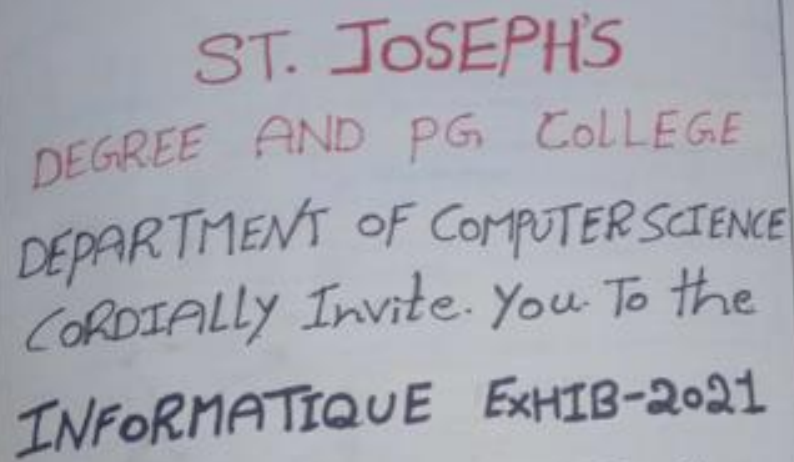 ST. JOSEPH'S
DEGREE AND PG COLLEGE
DEPARTMENT OF COMPUTER SCIENCE
CORDIALLY Invite. You. To the
INFORMATIQUE EXHIB-2021